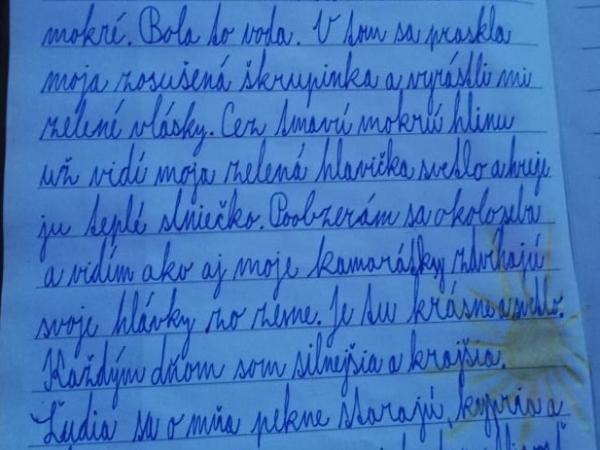 mokré. Bola to voda. V tom sa praskla
moja zosušená škrupinka a vyrástli mi
zelené vlásky. Cez tmavú mokrú hlinu
už vidí moja zelená hlavička svetlo a hreje
ju teplé slniečko. Poobzerám sa okolo seba
a vidím ako aj moje kamarátky zdvíhajú
svoje hlávky zo zeme. Je tu krásne a svetlo.
Každým dňom som silnejšia a krajšia.
Ľudia sa o mňa pekne starajú, kypria a